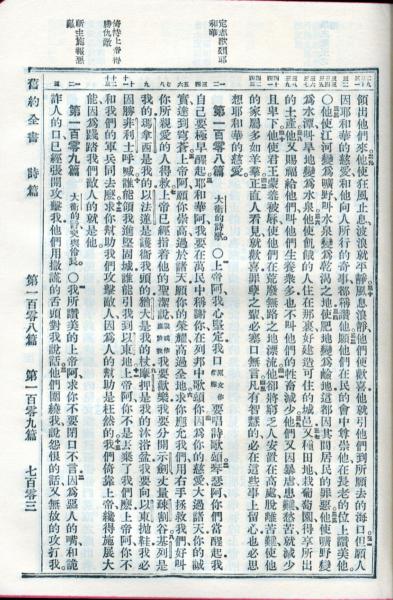 定志歌頌耶和華
倚恃上帝得勝仇敵
領出他們來他使狂風止息波浪就平靜風息浪靜他們便歡喜他就引他們到所願去的海口但願人
因耶和華的慈愛和他向人所行的奇事都稱讚他願他們在民的會中尊崇他在長老的位上讚美他
○他使江河變為曠野叫水泉變為乾渴之地使肥地變為鹼地這都因其間居民的罪惡他使曠野變
為水潭叫旱地變為水泉他使飢餓的人住在那裏好建造可住的城邑又種田地栽葡萄園得享所出
的土產他又賜福給他們叫他們生養衆多也不叫他們的牲畜減少他們又因暴虐患難愁苦就減少
且卑下他使君王蒙羞被辱使他們在荒廢無路之地漂流他卻將窮乏人安置在高處脫離苦難使他
的家屬多如羊羣正直人看見就歡喜罪孽之輩必塞口無言凡有智慧的必在這些事上留心也必思
想耶和華的慈愛。
第一百零八篇 大衛的詩歌。○上帝阿我心堅定我口原文作榮耀要唱詩歌頌琴瑟阿你們當醒起我
自己要極早醒起耶和華阿我要在萬民中稱謝你在列邦中歌頌你因為你的慈愛大過諸天你的誠
實達到穹蒼上帝阿願你崇高過於諸天願你的榮耀高過全地求你應允我們用右手拯救我們好叫
你所親愛的人得救上帝已經指着他的聖潔說說或作應許我要歡樂我要分開示劍丈量疎割谷基列是
我的瑪拿西是我的以法蓮是護衛我頭的猶大是我的杖摩押是我的沐浴盆我要向以東拋鞋我必
因勝非利士呼喊誰能領我進堅固城誰能引我到以東地上帝阿你不是丟棄了我們麼上帝阿你不
和我們的軍兵同去麼求你幫助我們攻擊敵人因為人的幫助是枉然的我們倚靠上帝纔得施展大
能因為踐踏我們敵人的就是他
第一百零九篇 大衛的詩交與伶長。○我所讚美的上帝阿求你不要閉口不言因為惡人的嘴和詭
詐人的口已經張開攻擊我他們用撒謊的舌頭對我說話他們圍繞我說怨恨的話又無故的攻打我
舊約全書 詩篇 第一百零八篇 第一百零九篇 七百零三